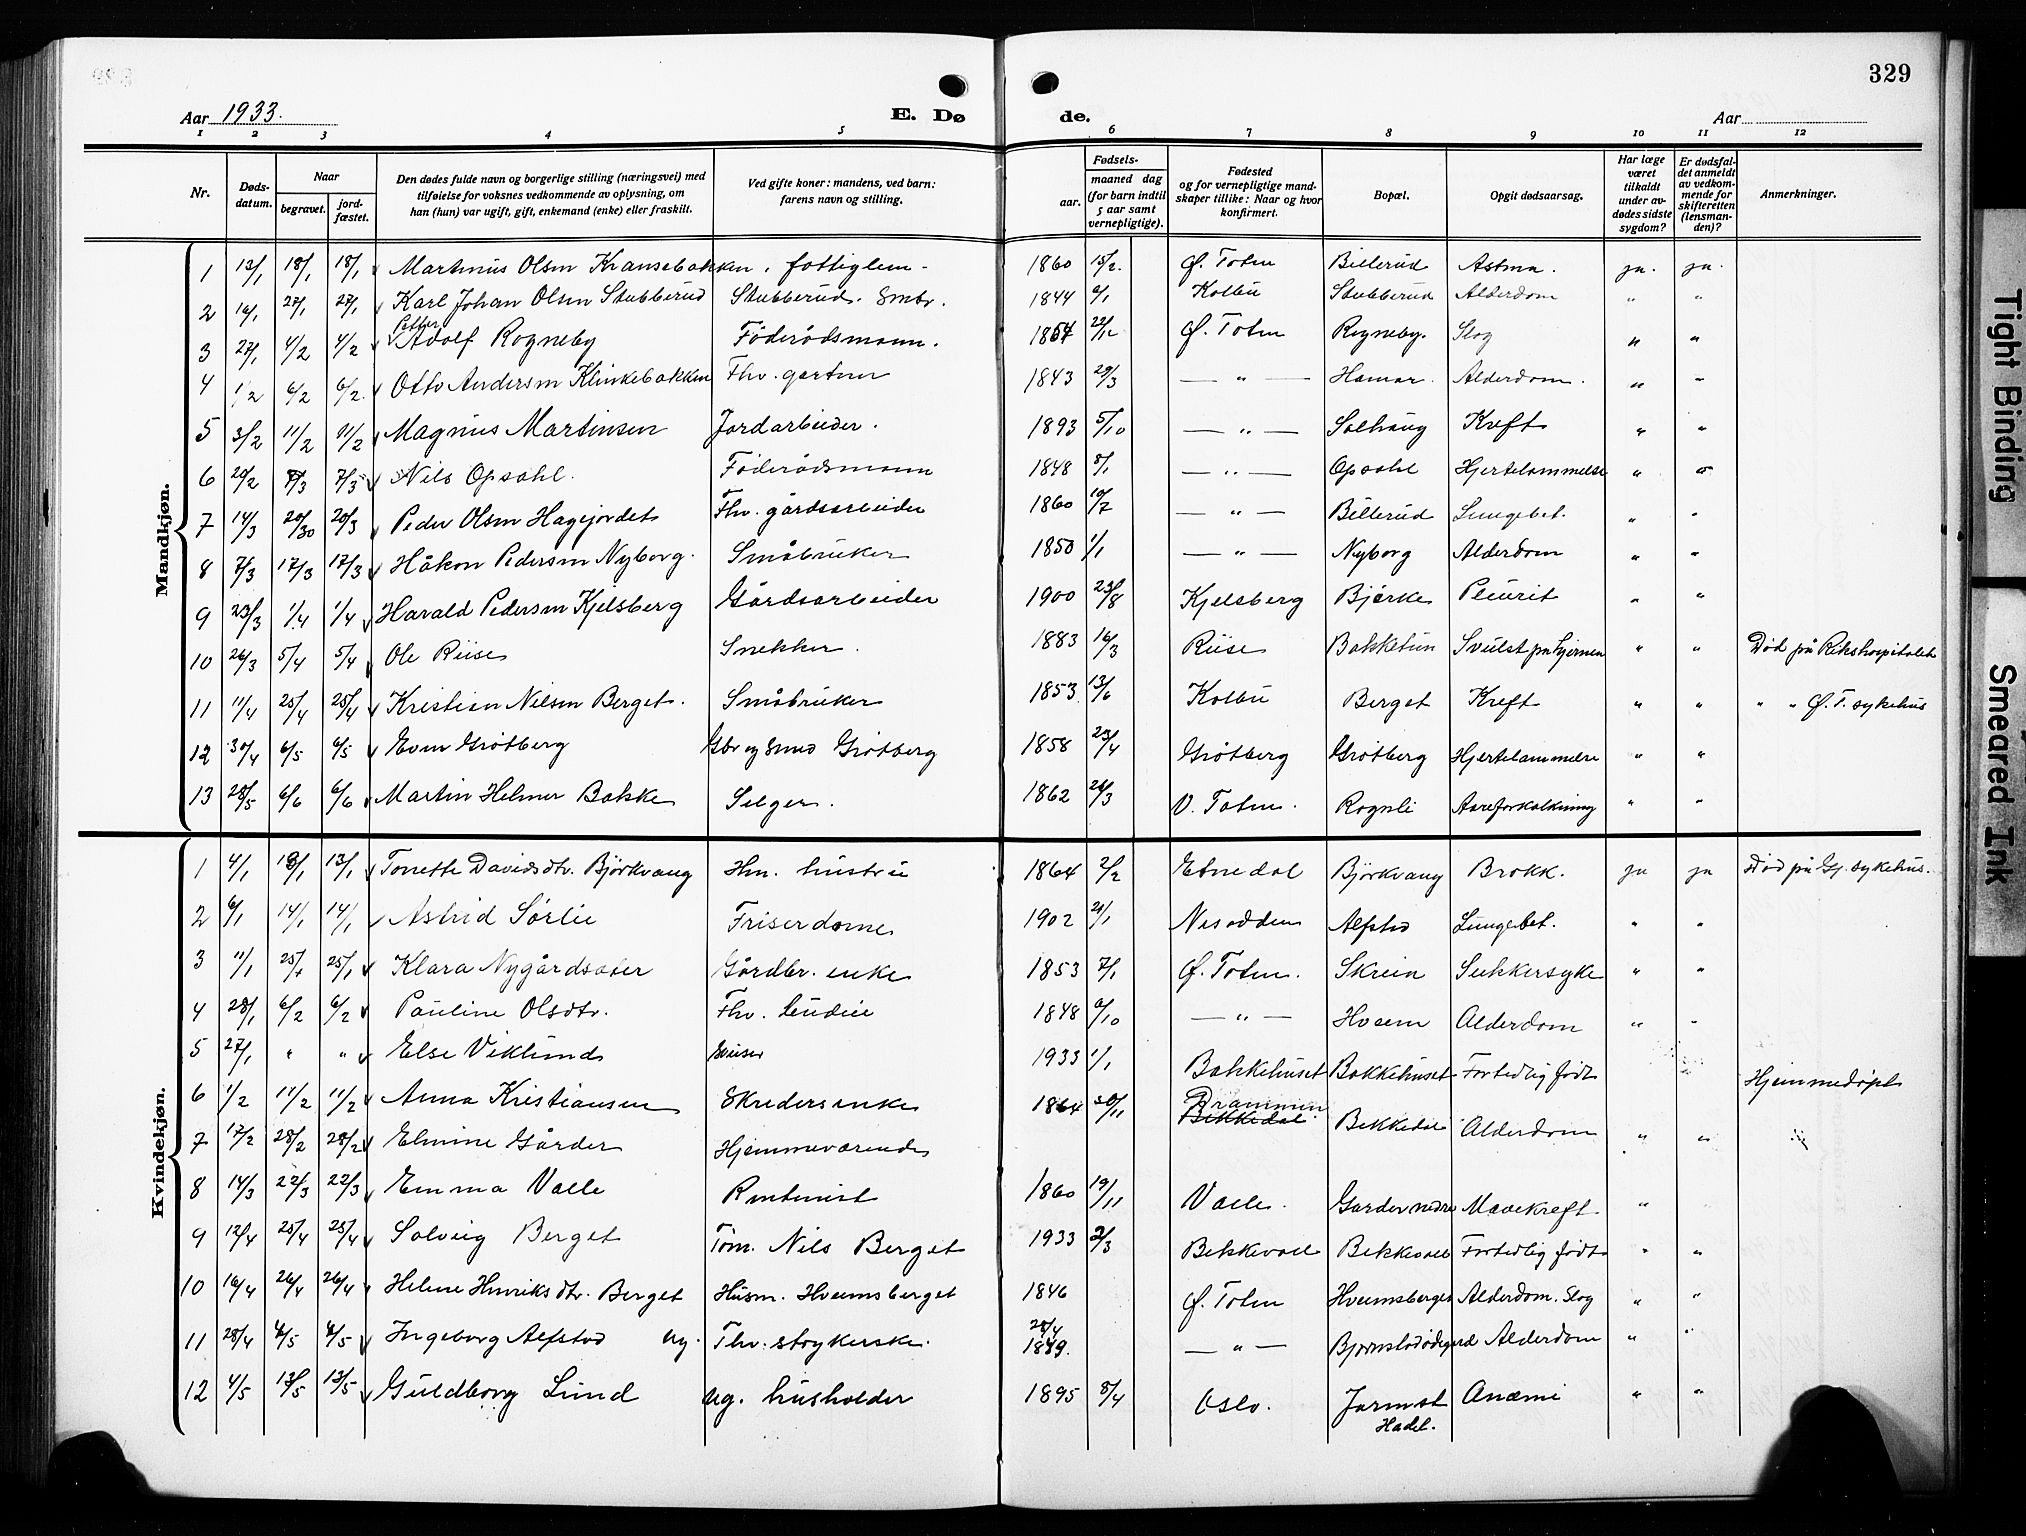 329
Aar 1933.
E. Dø
de.
Aar
1 2 3 4 5 6 7 8 9 10 11 12
Nr.
Døds-
datum.
Naar
begravet.
jord-
fæstet.
Den dødes fulde navn og borgerlige stilling (næringsvei) med
tilføielse for voksnes vedkommende av oplysning, om
han (hun) var ugift, gift, enkemand (enke) eller fraskilt.
Ved gifte koner: mandens, ved barn:
farens navn og stilling.
Fødsels-
aar.
maaned dag
(for barn indtil
5 aar samt
vernepligtige).
Fødested
og for vernepligtige mand-
skaper tillike: Naar og hvor
konfirmert.
Bopæl.
Opgit dødsaarsag.
Har læge
været
tilkaldt
under av-
dødes sidste
sygdom?
Er dødsfal-
det anmeldt
av vedkom-
mende for
skifteretten
(lensman-
den)?
Anmerkninger.
Mandkjøn.
1 13/1 18/1 18/1 Martinus Olsen Kransebakken, fattiglem. 1860 15/2 Ø. Toten Billerud Astma. ja. ja.
2 16/1 27/1 27/1 Karl Johan Olsen Stubberud Stubberud. Smbr. 1844 6/1 Kolbu Stubberud Alderdom " "
Petter
3 27/1 4/2 4/2 Adolf Rogneby Föderådsmann. 1854 22/12 Ø. Toten Rogneby. Slag " "
4 1/2 6/2 6/2 Otto Andersen Klinkebakken Fhv. gartner 1843 29/3 — " — Hamar. Alderdom. " "
5 3/2 11/2 11/2 Magnus Martinsen Jordarbeider. 1893 5/10 — " — Solhaug Kreft " "
6 20/2 7/3 7/3 Nils Opsahl. Föderådsmann 1848 8/1 — " — Opsahl Hjertelammelse " "
7 14/3 20/30 20/3 Peder Olsen Hagejordet Fhv. gårdsarbeider 1860 10/7 — " — Billerud Lungebet. " "
8 7/3 17/3 17/3 Håkon Pedersen Nyborg. Småbruker 1850 1/1 — " — Nyborg Alderdom " "
9 23/3 1/4 1/4 Harald Pedersen Kjelsberg Gårdsarbeider 1900 23/8 Kjelsberg Bjørke Pleurit " "
10 26/3 5/4 5/4 Ole Riise Snekker. 1883 16/3 Riise Bakketun Svulst på hjernen " " Död på Rikshospitalet
11 11/4 25/4 25/4 Kristian Nilsen Berget. Småbruker 1853 13/6 Kolbu Berget Kreft " " " " Ø. T. sykehus
12 30/4 6/5 6/5 Even Grötberg Gbr og smed Grötberg 1858 23/4 Grötberg Grötberg Hjertelammelse " "
13 28/5 6/6 6/6 Martin Helmer Bakke Selger. 1862 26/3 V. Toten. Rognli Aareforkalkning " "
Kvindekjøn.
1 4/1 13/1 13/1 Tonette Davidsdtr. Björkvang Hm. hustru 1864 2/2 Etnedal Björkvang Brokk. ja ja Död på Gj. sykehus.
2 6/1 14/1 14/1 Astrid Sørlie Friserdame 1902 21/1 Nesodden Alfstad Lungebet. " "
3 11/1 25/1 25/1 Klara Nygårdsæter Gårdbr. enke 1853 7/1 Ø. Toten. Skreia Sukkersyke " "
4 28/1 6/2 6/2 Pauline Olsdtr. Fhv. budeie 1848 6/10 — " — Hveem Alderdom " "
5 27/1 " " Else Viklund 1933 1/1 Bakkehuset Bakkehuset Fortidlig født " Hjemmedøpt
6 1/2 11/2 11/2 Anna Kristiansen Skredersenke 1864 30/11 Drammen Bekkedal Bekkedal Alderdom " "
7 17/2 28/2 28/2 Elmine Gårder Hjemmeværende
8 14/3 22/3 22/3 Emma Valle Rentenist 1860 19/11 Valle. Garder nedre Mavekreft. "
9 12/4 25/4 25/4 Solveig Berget Töm. Nils Berget 1933 2/3 Bekkevoll Bekkevoll Fortidlig født " "
10 16/4 26/4 26/4 Helene Henriksdtr. Berget Husm. Hveemsberget 1846 Ø. Toten Hveemsberget Alderdom. Slag " "
11 28/4 4/5 4/5 Ingeborg Alfstad ug. Fhv. strykerske. 28/4 1849. — " — Bjørnstadødegård Alderdom " "
12 4/5 13/5 13/5 Guldborg Lund ug. husholder 1895 8/4 Oslo. Jarenst Hadel. Anæmi " "
Tight Binding
Smeared Ink